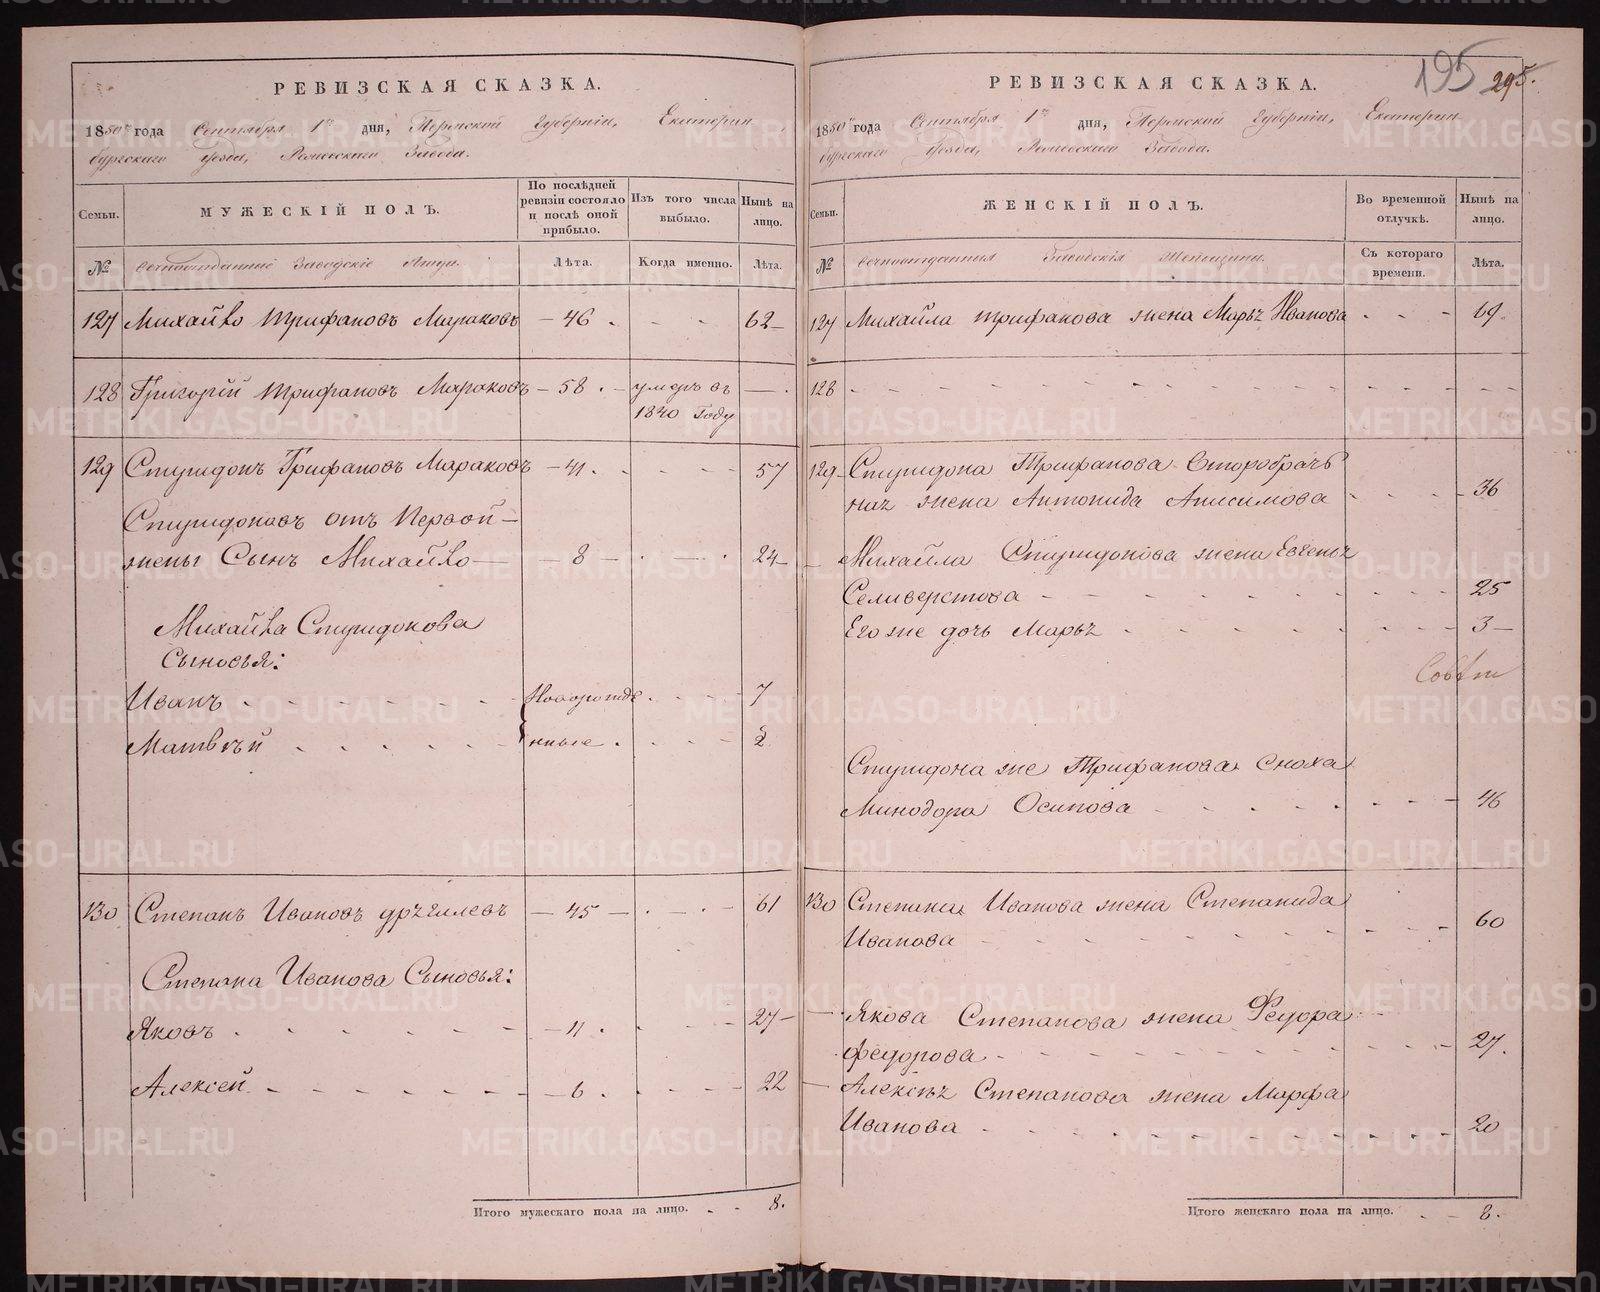 195 295.
РЕВИЗСКАЯ СКАЗКА.
1850го года Сентября 1го дня, Пермской Губернiи, Екатерин
бургскаго уезда, Завода.
Семьи. МУЖЕСКIЙ ПОЛЪ. По послѣдней ревизiи состояло и послѣ оной прибыло. Изъ того числа выбыло. Нынѣ на лицо.
№ Вечноотданные Заводскiе Люди. Лѣта. Когда именно. Лѣта.
127 Михайло Трифановъ Мараковъ — 46 . 62 —
128 Григорiй Трифановъ Мараковъ — 58 . — умеръ въ —
1840 Году
129 Спиридонъ Трифановъ Мараковъ — 41 . 57
Спиридоновъ отъ Первой —
жены Сынъ Михайло — — 8 — 24 —
Михайла Спиридонова
Сыновья:
Иванъ Новорожде 7
Матвѣй нные . 2
130 Степанъ Ивановъ — 45 — 61
Степана Иванова Сыновья:
Яковъ — 11 . 27 —
Алексей — 6 . 22
Итого мужескаго пола на лицо. 8.
РЕВИЗСКАЯ СКАЗКА.
1850го года Сентября 1го дня, Пермской Губернiи, Екатерин
бургскаго уезда, Завода.
Семьи. ЖЕНСКIЙ ПОЛЪ. Во временной отлучкѣ. Нынѣ на лицо.
№ Вечноотданныя Заводскiя Женщины. Съ котораго времени. Лѣта.
127 Михайла трифанова жена Марья Иванова 69.
128
129 Спиридона Трифанова Второбрач
ная жена Антонида Анисимова 36
Михайла Спиридонова жена Евгенья
Селиверстова 25
Его же дочь Марья 3 —
Спиридона же Трифанова сноха
Минодора Осипова 46
130 Степана Иванова жена Степанида
Иванова 60
Якова Степанова жена Федора
Федорова 27.
Алексея Степанова жена Марфа
Иванова 20
Итого женскаго пола на лицо. 8.
METRIKI.GASO-URAL.RU